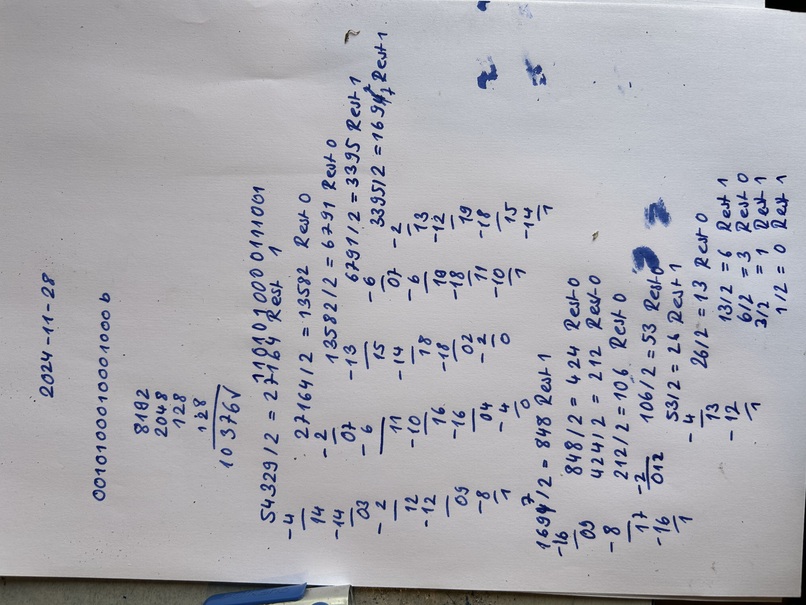 2024-11-28
0010100010001000 b
8192
2048
128
128
10 376√
1101010000111001
54329/2 = 27164 Rest 1
-4
14
-14
03
-2
12
-12
09
-8
1
27164/2 = 13582 Rest 0
-2
07
-6
11
-10
16
-16
04
-4
0
13582/2 = 6791 Rest 0
-13
15
-14
18
-18
02
-2
0
6791/2 = 3395 Rest 1
-6
07
-6
19
-18
11
-10
1
3395/2 = 1697 Rest 1
-2
13
-12
19
-18
15
-14
1
1697/2 = 848 Rest 1
-16
09
-8
17
-16
1
848/2 = 424 Rest 0
424/2 = 212 Rest 0
212/2 = 106 Rest 0
-2
012
106/2 = 53 Rest 0
53/2 = 26 Rest 1
-4
13
-12
1
26/2 = 13 Rest 0
13/2 = 6 Rest 1
6/2 = 3 Rest 0
3/2 = 1 Rest 1
1/2 = 0 Rest 1